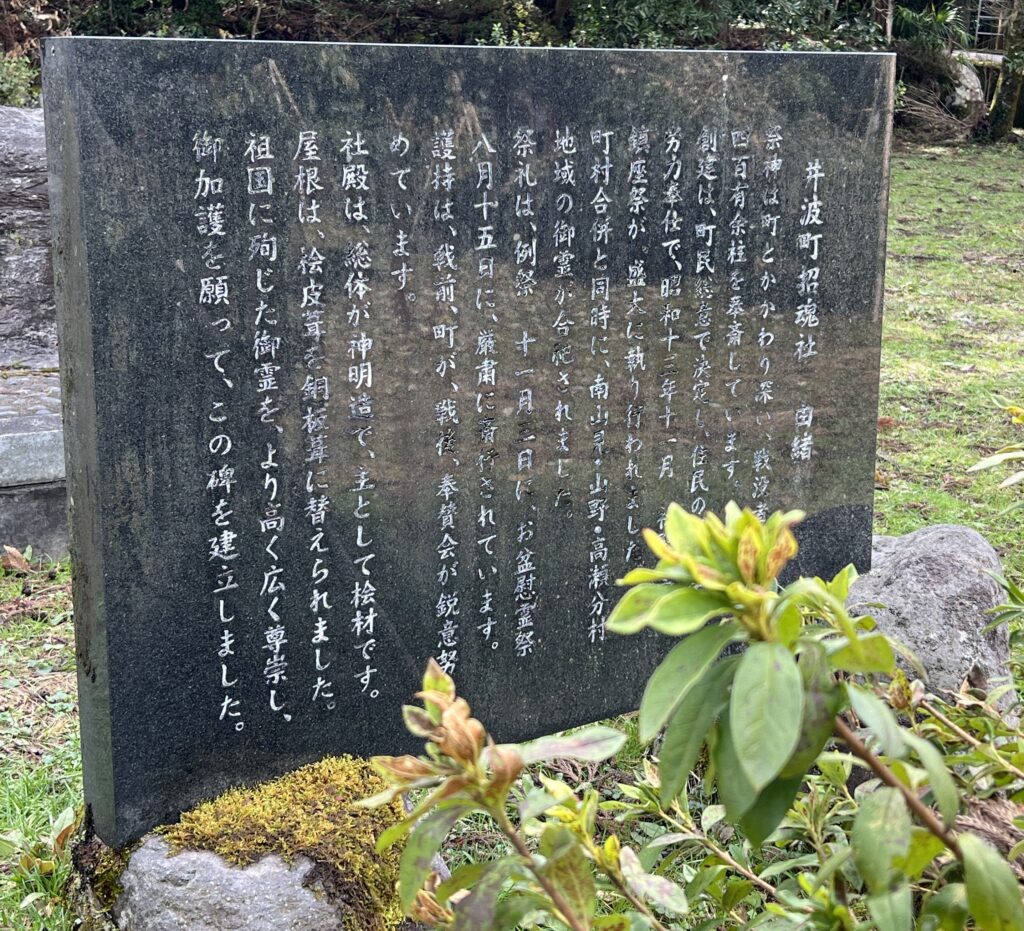 井波町招魂社 由緒
祭神は町とかかわり深い、戦没者
四百有余柱を奉斎しています。
創建は、町民総意で決定し、住民の
労力奉仕で、昭和十三年十一月
鎮座祭が、盛大に執り行われました
町村合併と同時に、南山見・山野・高瀬分村
地域の御霊が合祀されました。
祭礼は、例祭 十一月三日に、お盆慰霊祭
八月十五日に、厳粛に斎行されています。
護持は、戦前、町が、戦後、奉賛会が鋭意努
めています。
社殿は、総体が神明造で、主として桧材です。
屋根は、桧皮葺を銅板葺に替えられました。
祖国に殉じた御霊を、より高く広く尊崇し、
御加護を願って、この碑を建立しました。